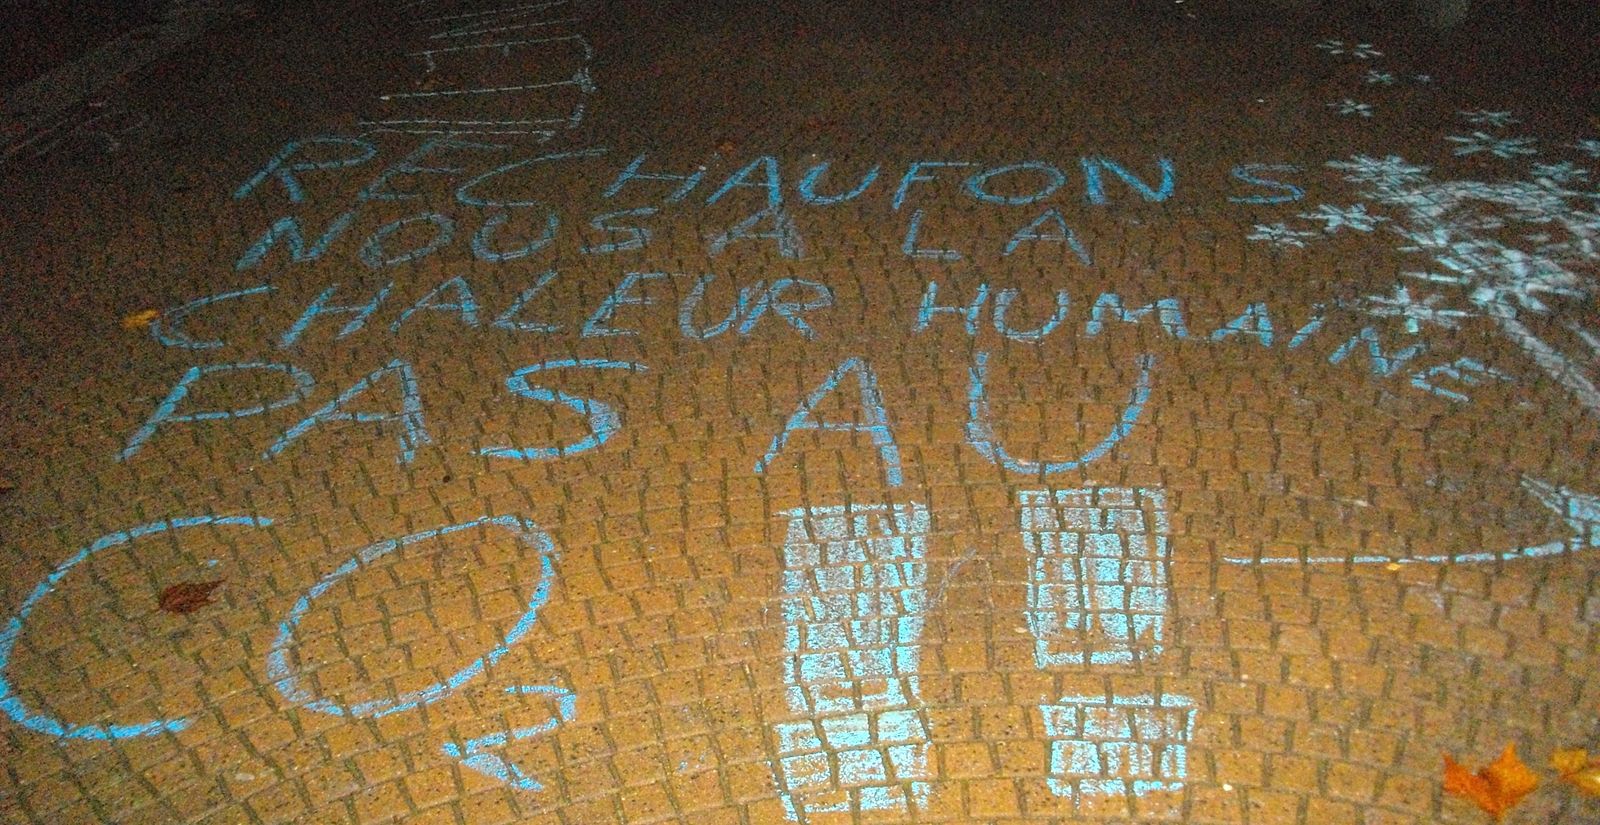 RECHAUFONS
NOUS A LA
CHALEUR HUMAINE
PAS AU
CO2 !!